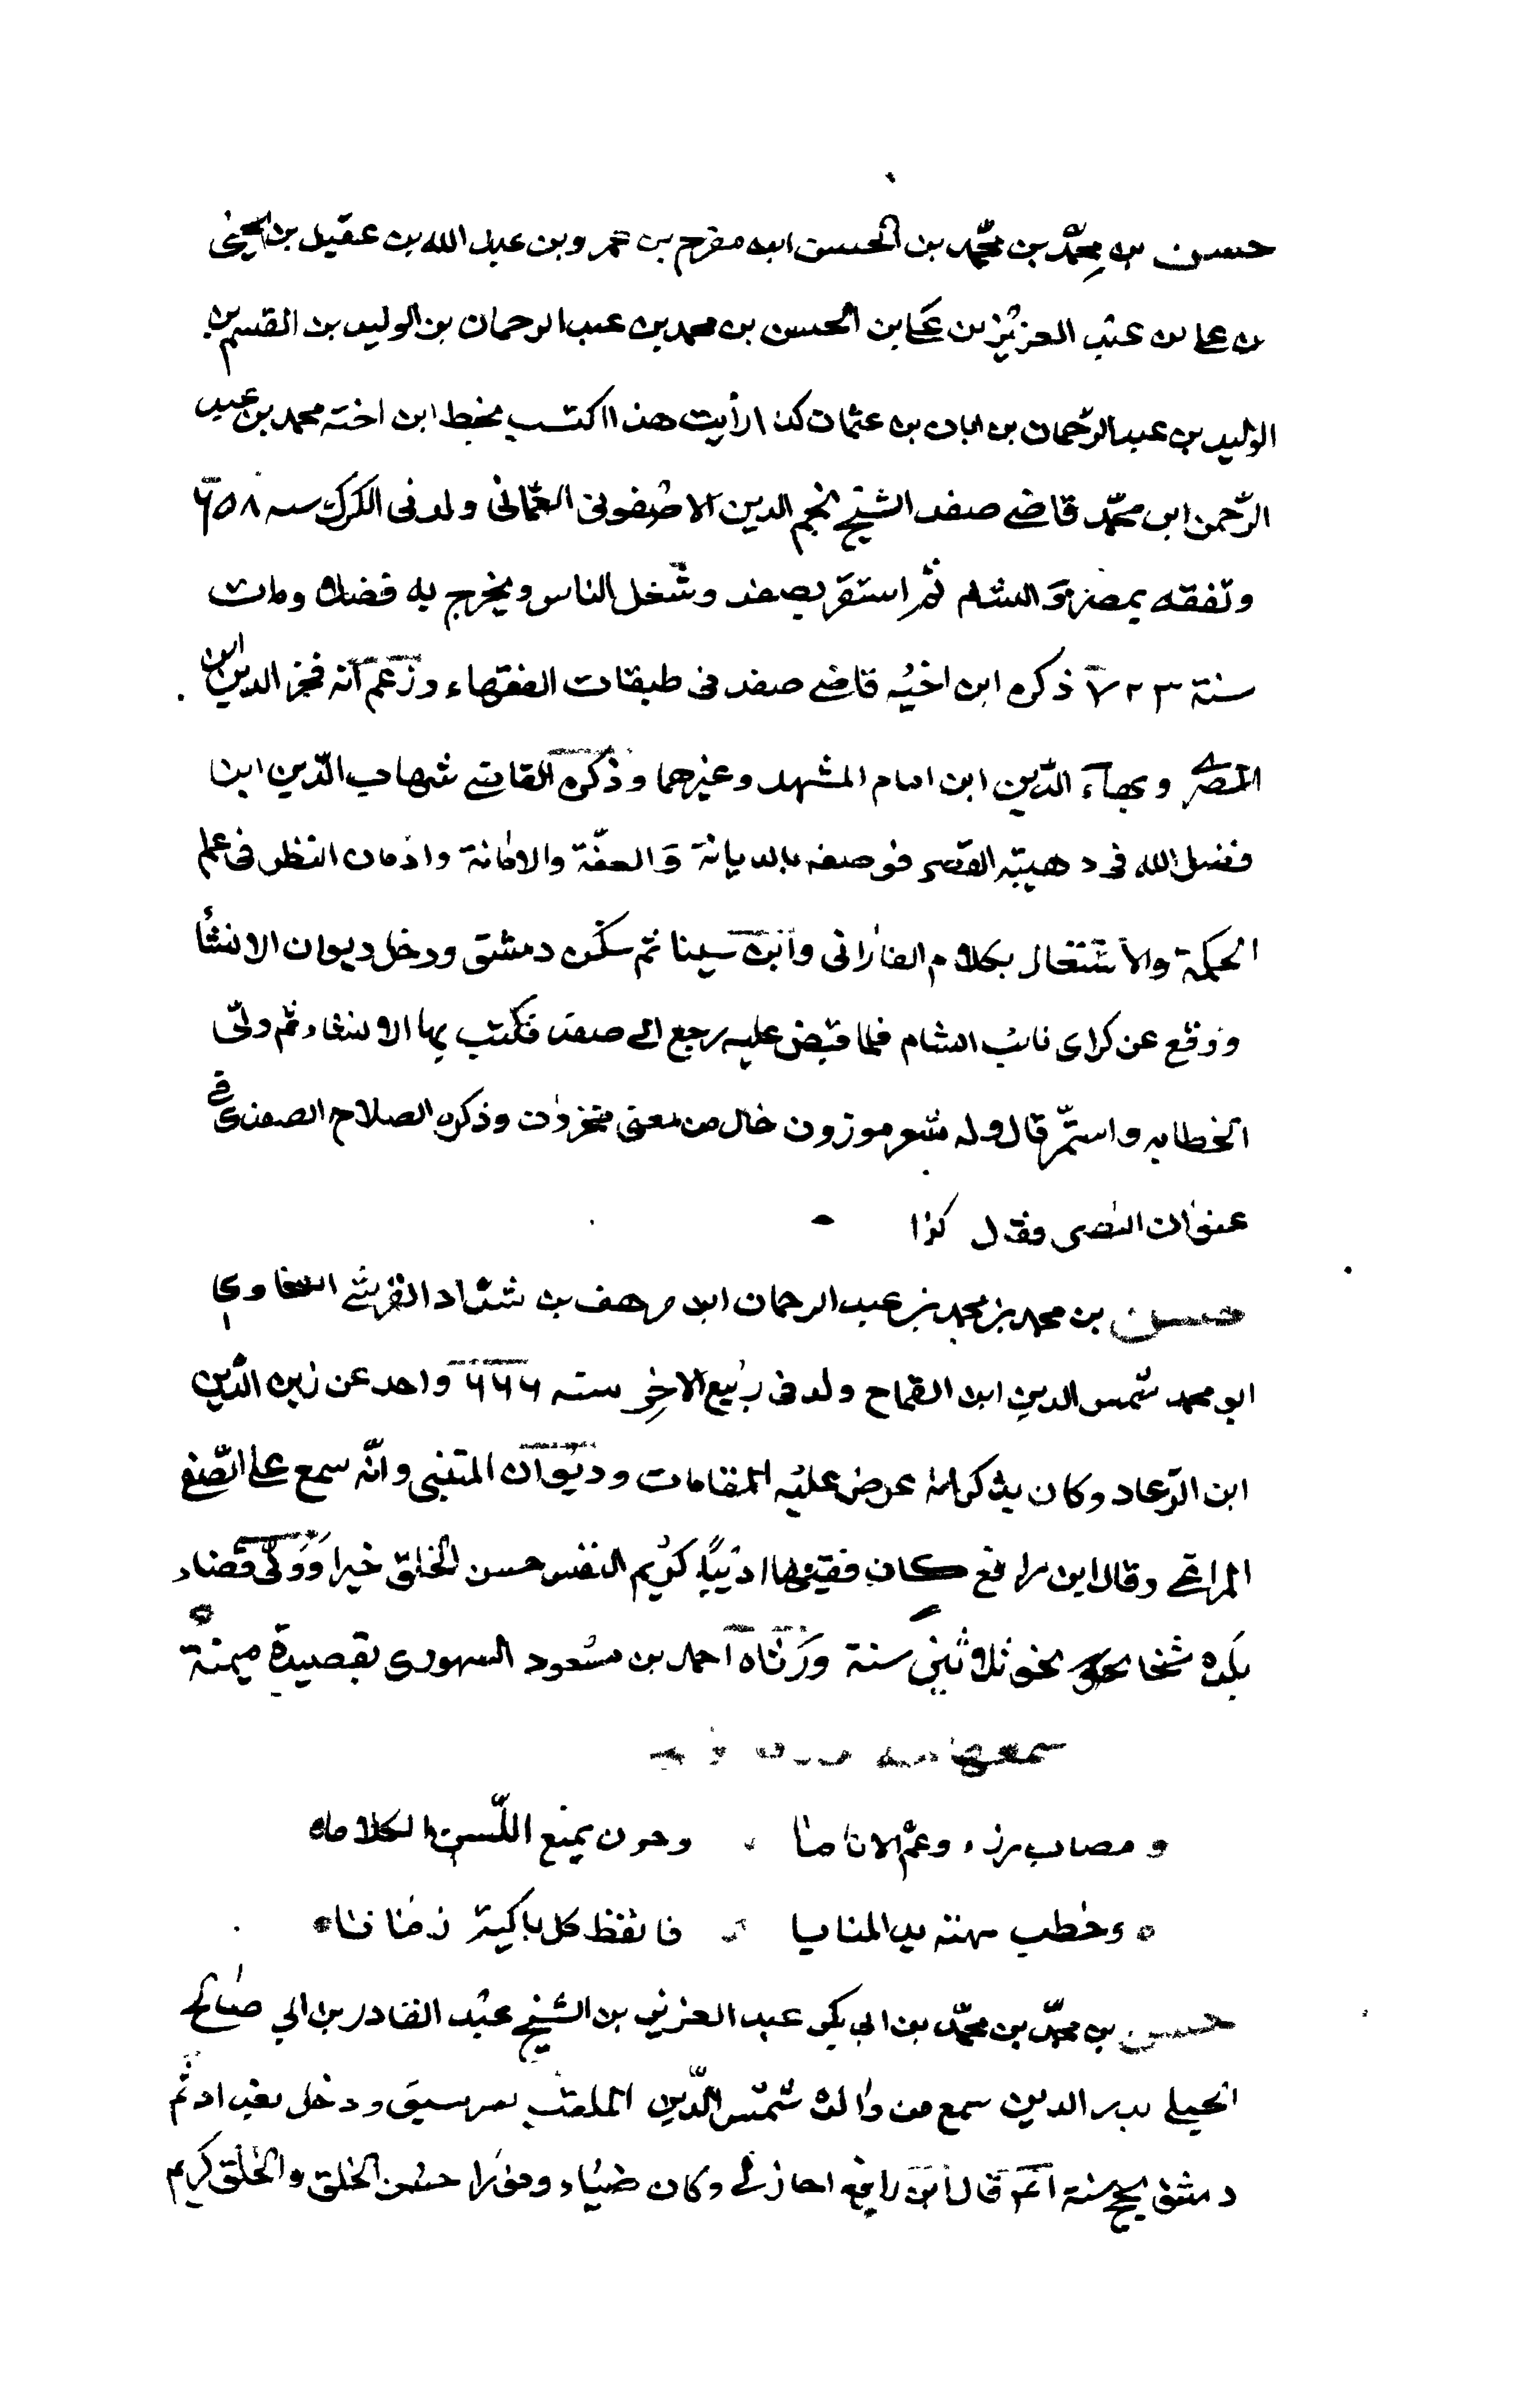 حسن بن محمّد بن محمّد بن الحسن ابن مفرح بن عمر وبن عبد الله بن عقيل بن يحيى
بن على بن عبد العزيز بن على بن الحسن بن محمد بن عبد الرحمان بن الوليد بن القسم بن
الوليد بن عبد الرحمان بن ابان بن عثمان كذا رأيت هذا اكتب بخط ابن اخته محمد بن عبد
الرّحمن ابن محمّد قاضى صفد الشيخ نجم الدين الاصفونى العثمانى ولد فى الكرك سنه ٦٥٨
وتفقه بمصر والشام ثم استقر بصفد وشغل الناس ويخرج به فضلا ومات
سنة ٧٢٣ ذكره ابن اخيه قاضى صفد فى طبقات الفقهاء وزعم انه فخر الدين ابن
المصرى وبهاء الدّين ابن امام المشهد وغيرهما وذكره القاضى شهاب الدّين ابن
فضل الله فى د هيبته القصر فوصفه بالديانة والعفّة والامانة واذمان النظر فى علم
الحكمة والاشتغال بكلام الفارابى وابن سينا ثم سكن دمشق ودخل ديوان الانشأ
ووقع عن كراى نائب الشام فلما قبض عليه رجع الى صفد فكتب بها الانشاء ثم ولّى
الخطابه واستمّر قال وله شعر موزون خال من معنى مخزون وذكره الصلاح الصفدى فى
عنوان النصر وفقال كذا
حسن بن محمد بن محمد بن عبد الرحمان ابن مرهف بن شداد القرشى السخاوى
ابو محمد شمس الدين ابن القماح ولد فى ربيع الاخر سنه ٦٦٦ واحد عن زين الدّين
ابن الرّعاد وكان يذكر انه عرض عليه المقامات وديوان المتنبى وانّه سمع على الصّفى
المراغى وقال ابن رافع كان فقيها اديبًا كريم النفس حسن الخلق خيرا وولى قضاء
بلده شخا نحو ثلاثين سنة ورثاه احمد بن مسعود السهورى بقصيدة ميمنة
سمعها منه
ومصاب رزء وعمّ الاناما وحزن يمنع اللّسن الكلاما
وخطب سنته يد المنايا فايقظ كل باكية زمانا
حسن بن محمّد بن محمّد بن ابى بكر عبد العزيز بن الشيخ عبد القادر بن ابي صالح
الجيلى بدر الدين سمع من والده شمس الدّين الملقب سرسيق ودخل بغداد ثم
دمشق ليحج سنة ٧٤١ قال ابن رافع اجاز لى وكان ضياء وقورا حسن الخلق والخلق كريم